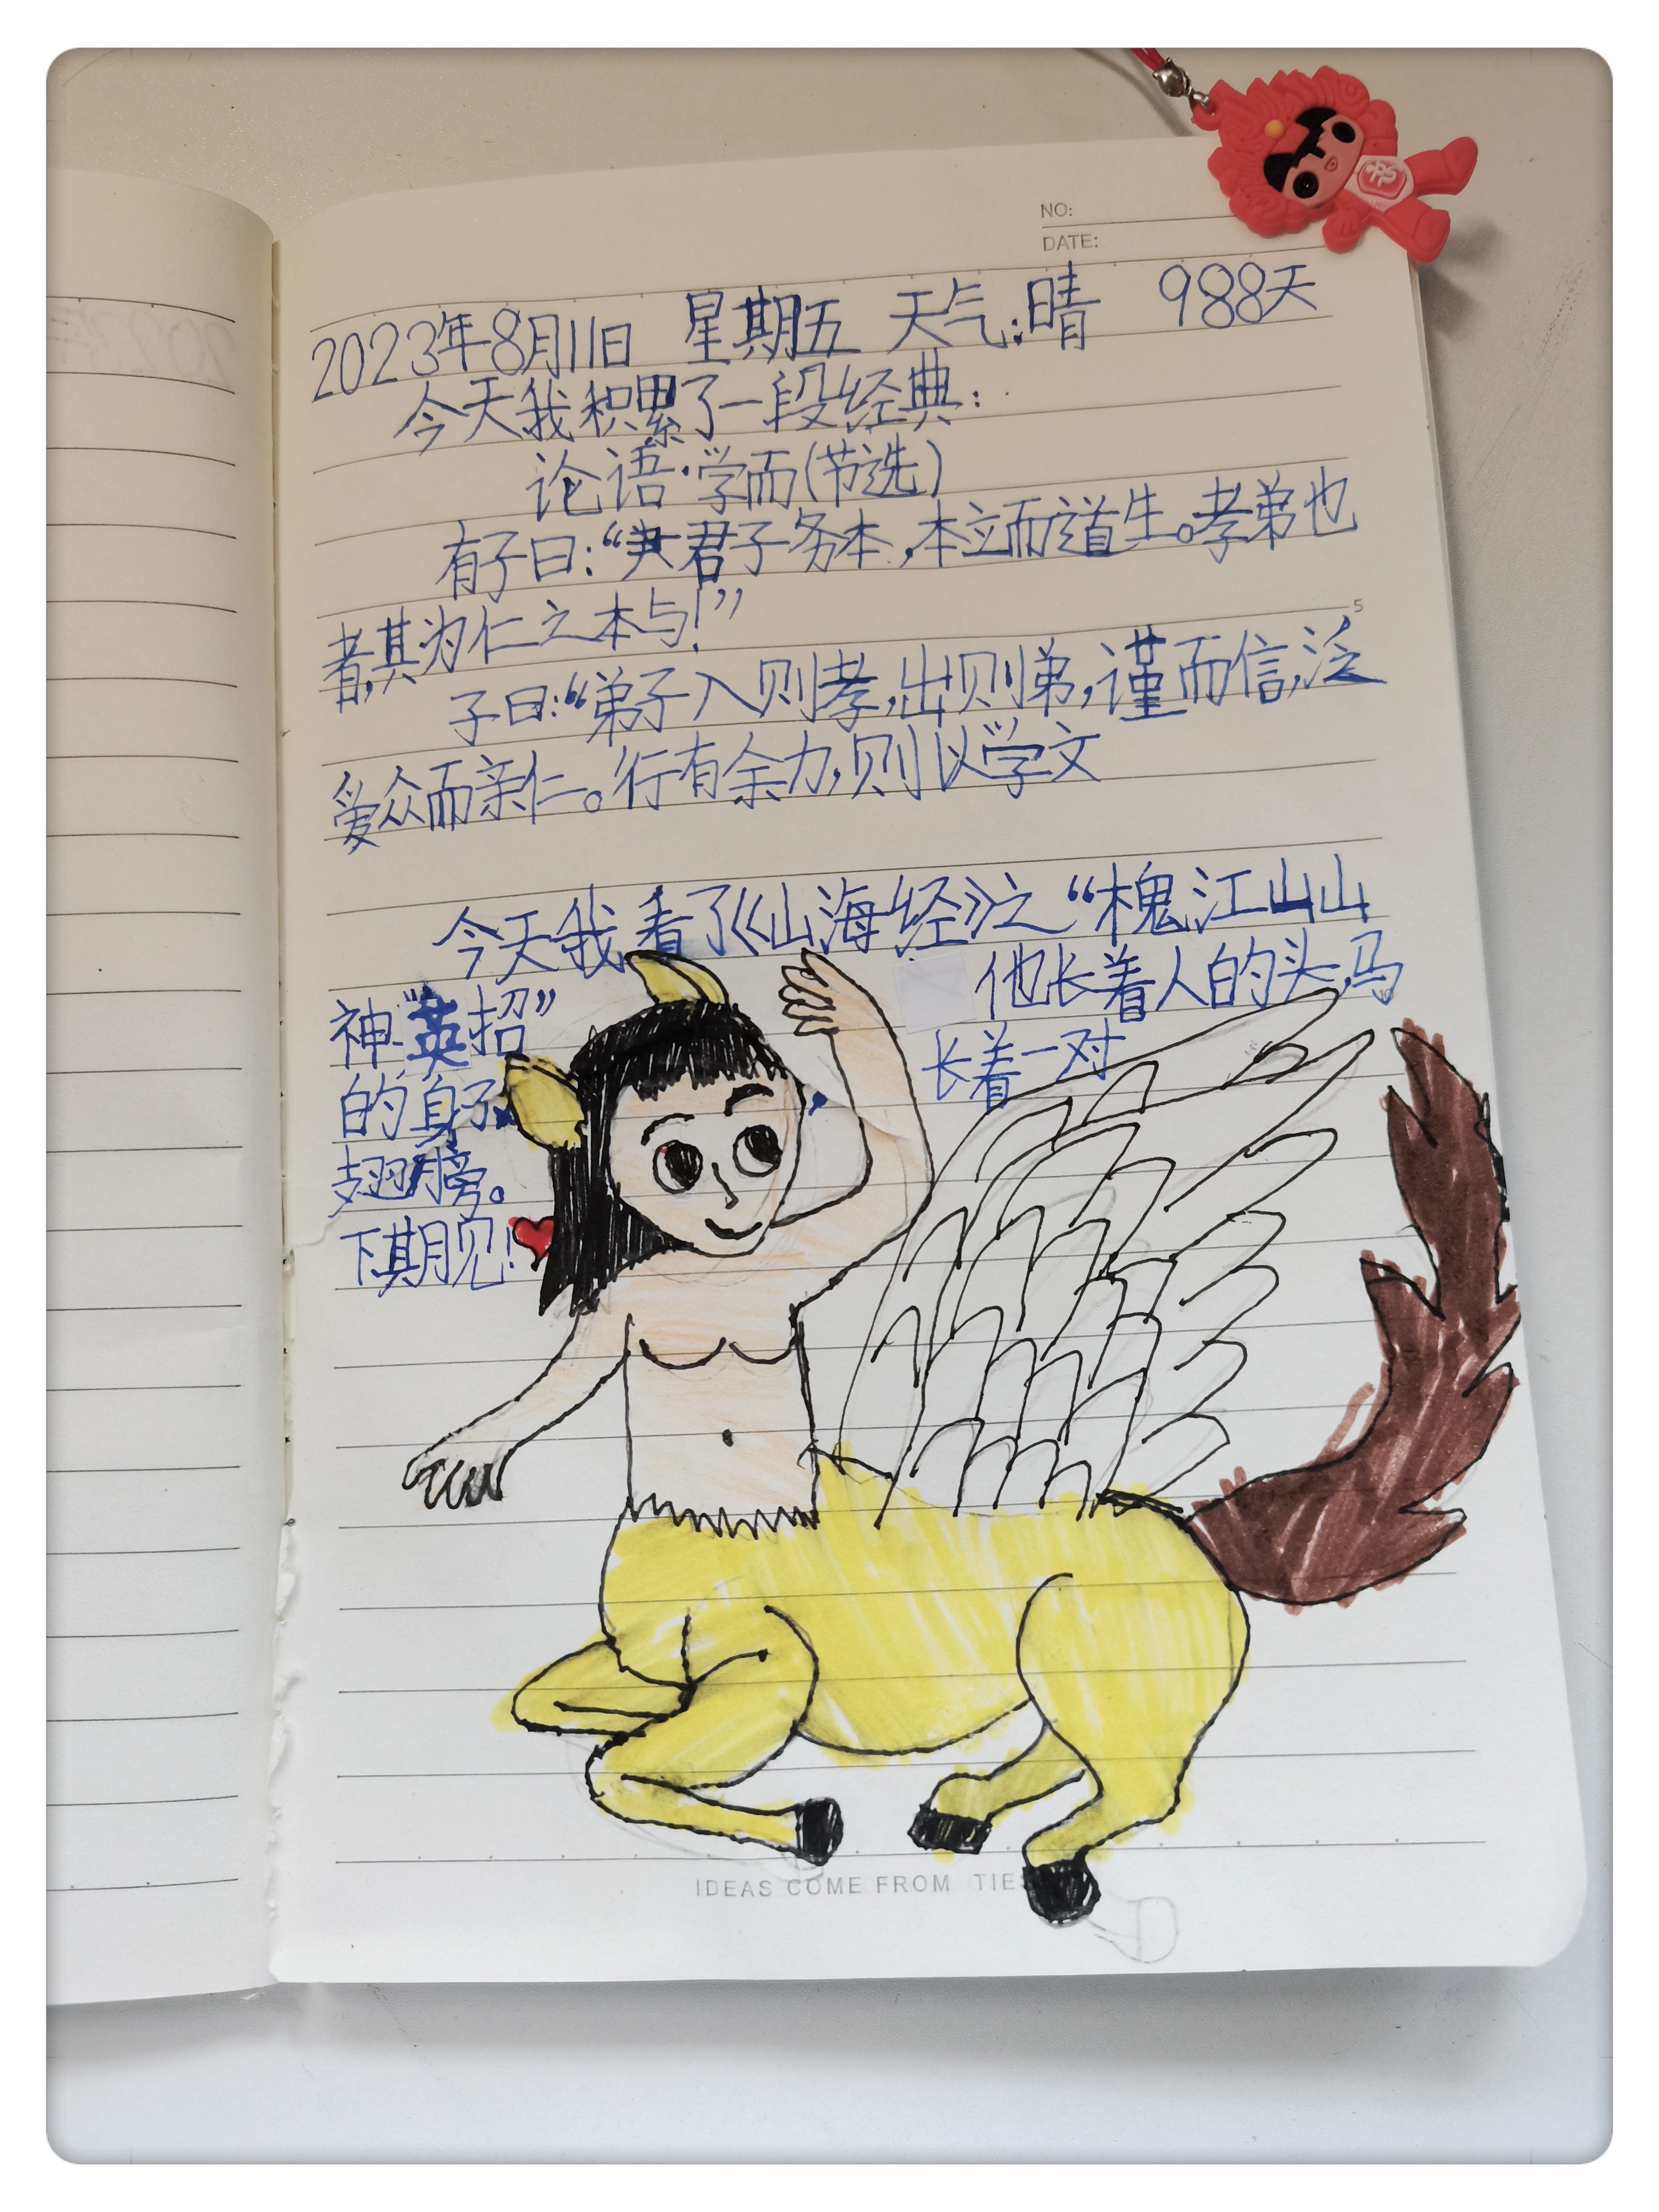 NO:
DATE:
2023年8月11日 星期五 天气:晴 988天
今天我积累了一段经典:
论语·学而(节选)
有子曰:“君子务本,本立而道生。孝弟也
5
者,其为仁之本与!”
子曰:“弟子入则孝,出则悌,谨而信,泛
爱众而亲仁。行有余力,则以学文
今天我看了《山海经》之“槐江山山
神“英招” 他长着人的头,马
的身子, 长着一对
翅膀。
下期见!
IDEAS COME FROM TIES